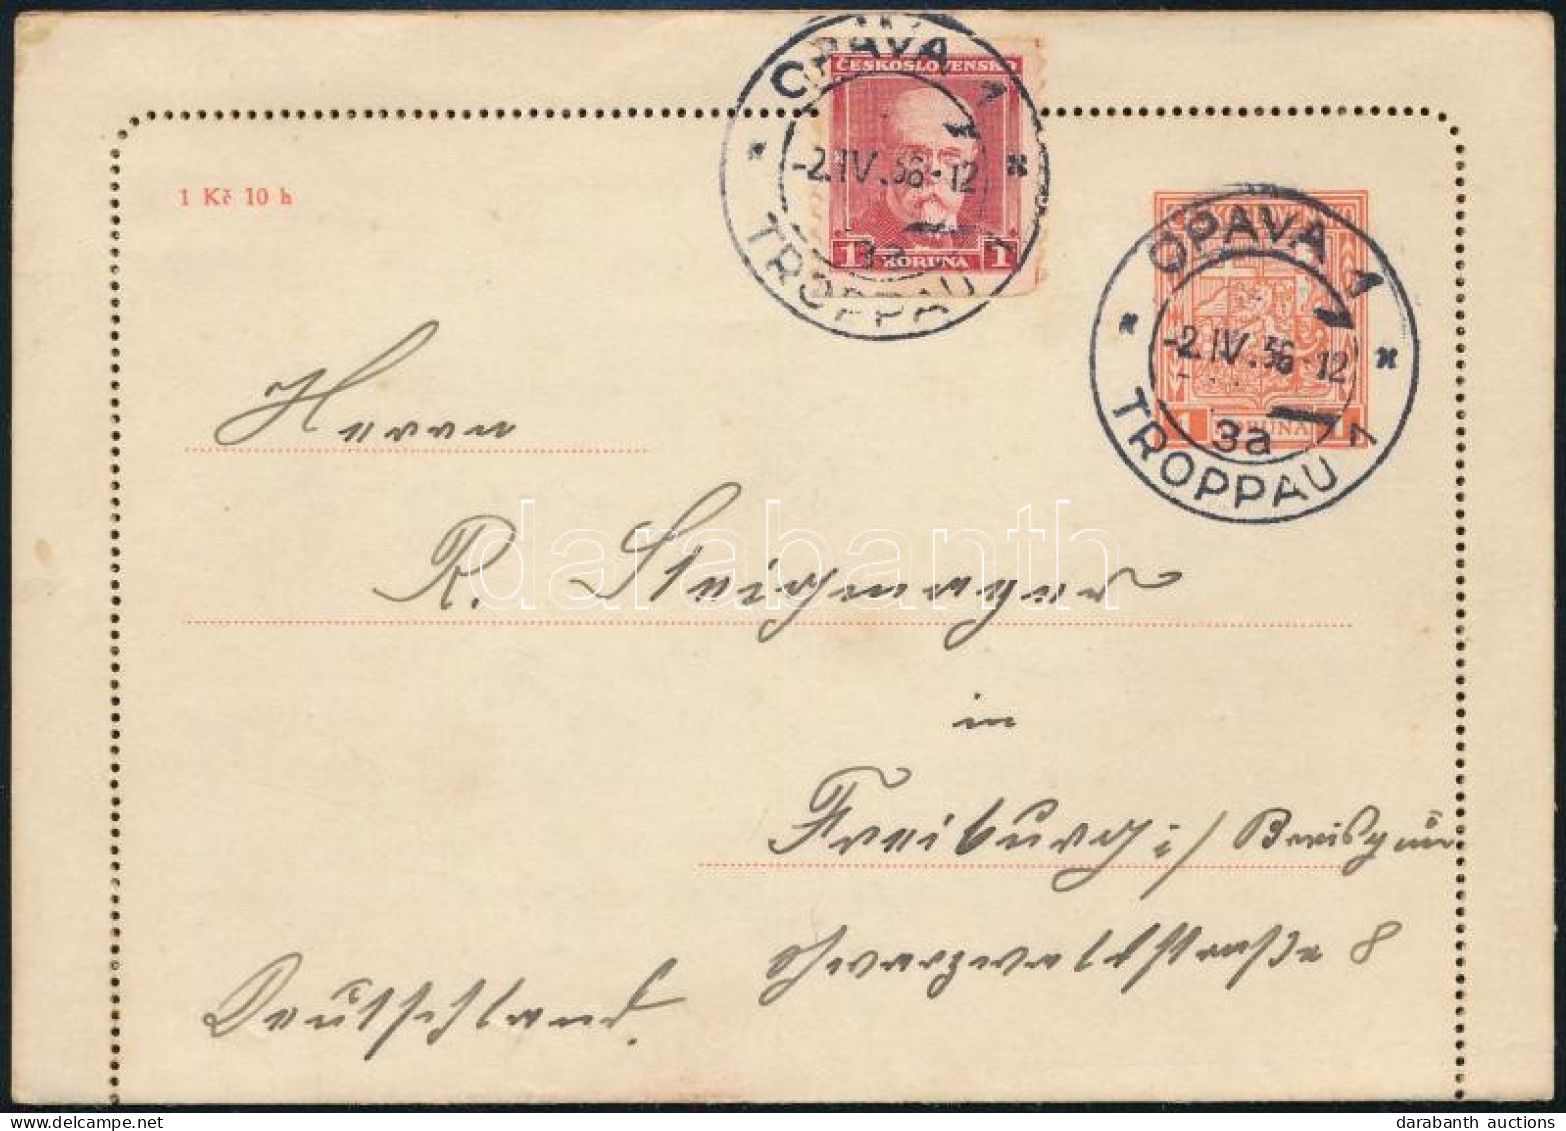 OPAVA 1
-2.IV.36-12
TROPPAU 1
ČESKOSLOVENSKO
1 KORUNA 1
1 Kč 10 h
OPAVA 1
-2.IV.36-12
3a
TROPPAU 1
1 KORUNA 1
Herrn
R. Steigmayer
darabanth
in
Freiburg i/ Breisgau
Schwarzwaldstraße 8
Deutschland.
darabanth auctions